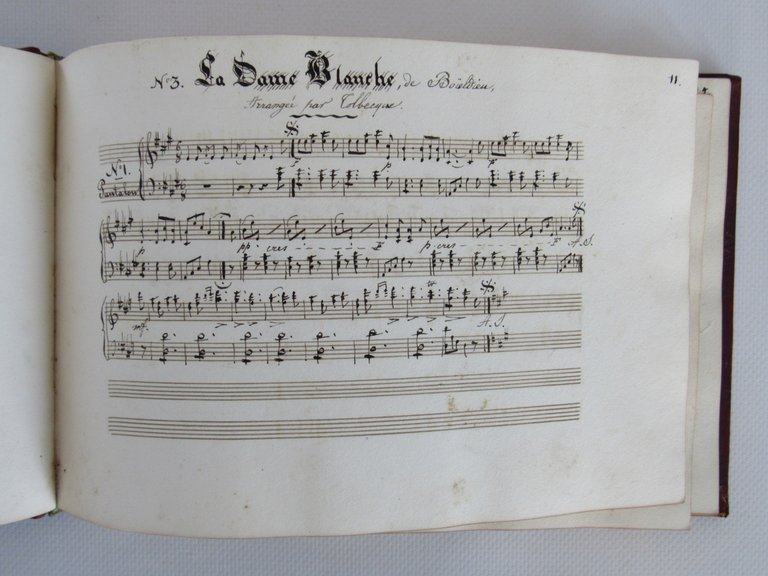 Nº3. La Dame Blanche, de Boïeldieu,
11.
Arrangée par Tolbecque.
Nº1.
Pantalon
p
p
p
pp. cres - - - F
p. cres - - - F A.S.
A.S.